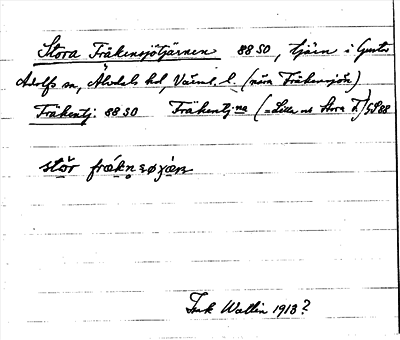 Stora Fräkensjötjärnen 88 SO, tjärn i Gustav
Adolfs sn, Älvdals hd, Värml. l. (nära Fräkensjön)
Fräkentj: 88 SO Fräkentj:na (=Lilla o Stora F.) GS 88
stór frǽkn
Ink Wallin 1913?